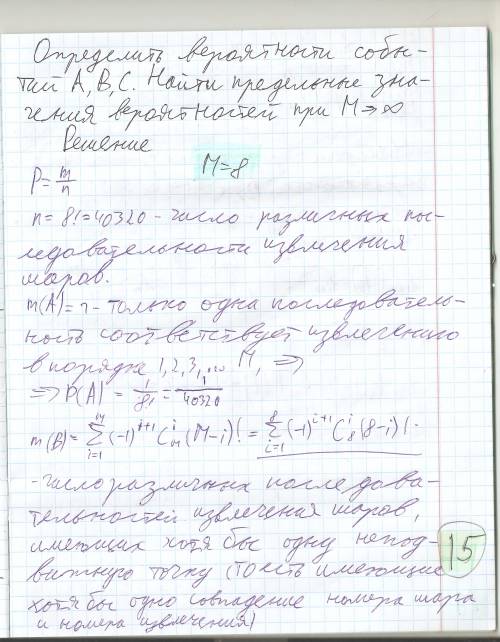 Определить вероятности собы-
тий А, В, С. Найти предельные зна-
чения вероятностей при М→∞
Решение
M=8
P=m/n
n=8!=40320 - число различных пос-
ледовательности извлечения
шаров.
m(A)=1 - только одна последователь-
ность соответствует извлечению
в порядке 1,2,3,... M, ⇒
⇒ P(A) = 1/8! = 1/40320
m(B)=∑_{i=1}^{M}(-1)^{i+1} C_M^i (M-i)! = ∑_{i=1}^{8}(-1)^{i+1} C_8^i (8-i)! -
-число различных последова-
тельностей извлечения шаров,
имеющих хотя бы одну непод-
вижную точку (то есть имеющие
хотя бы одно совпадение номера шара
и номера извлечения)
15